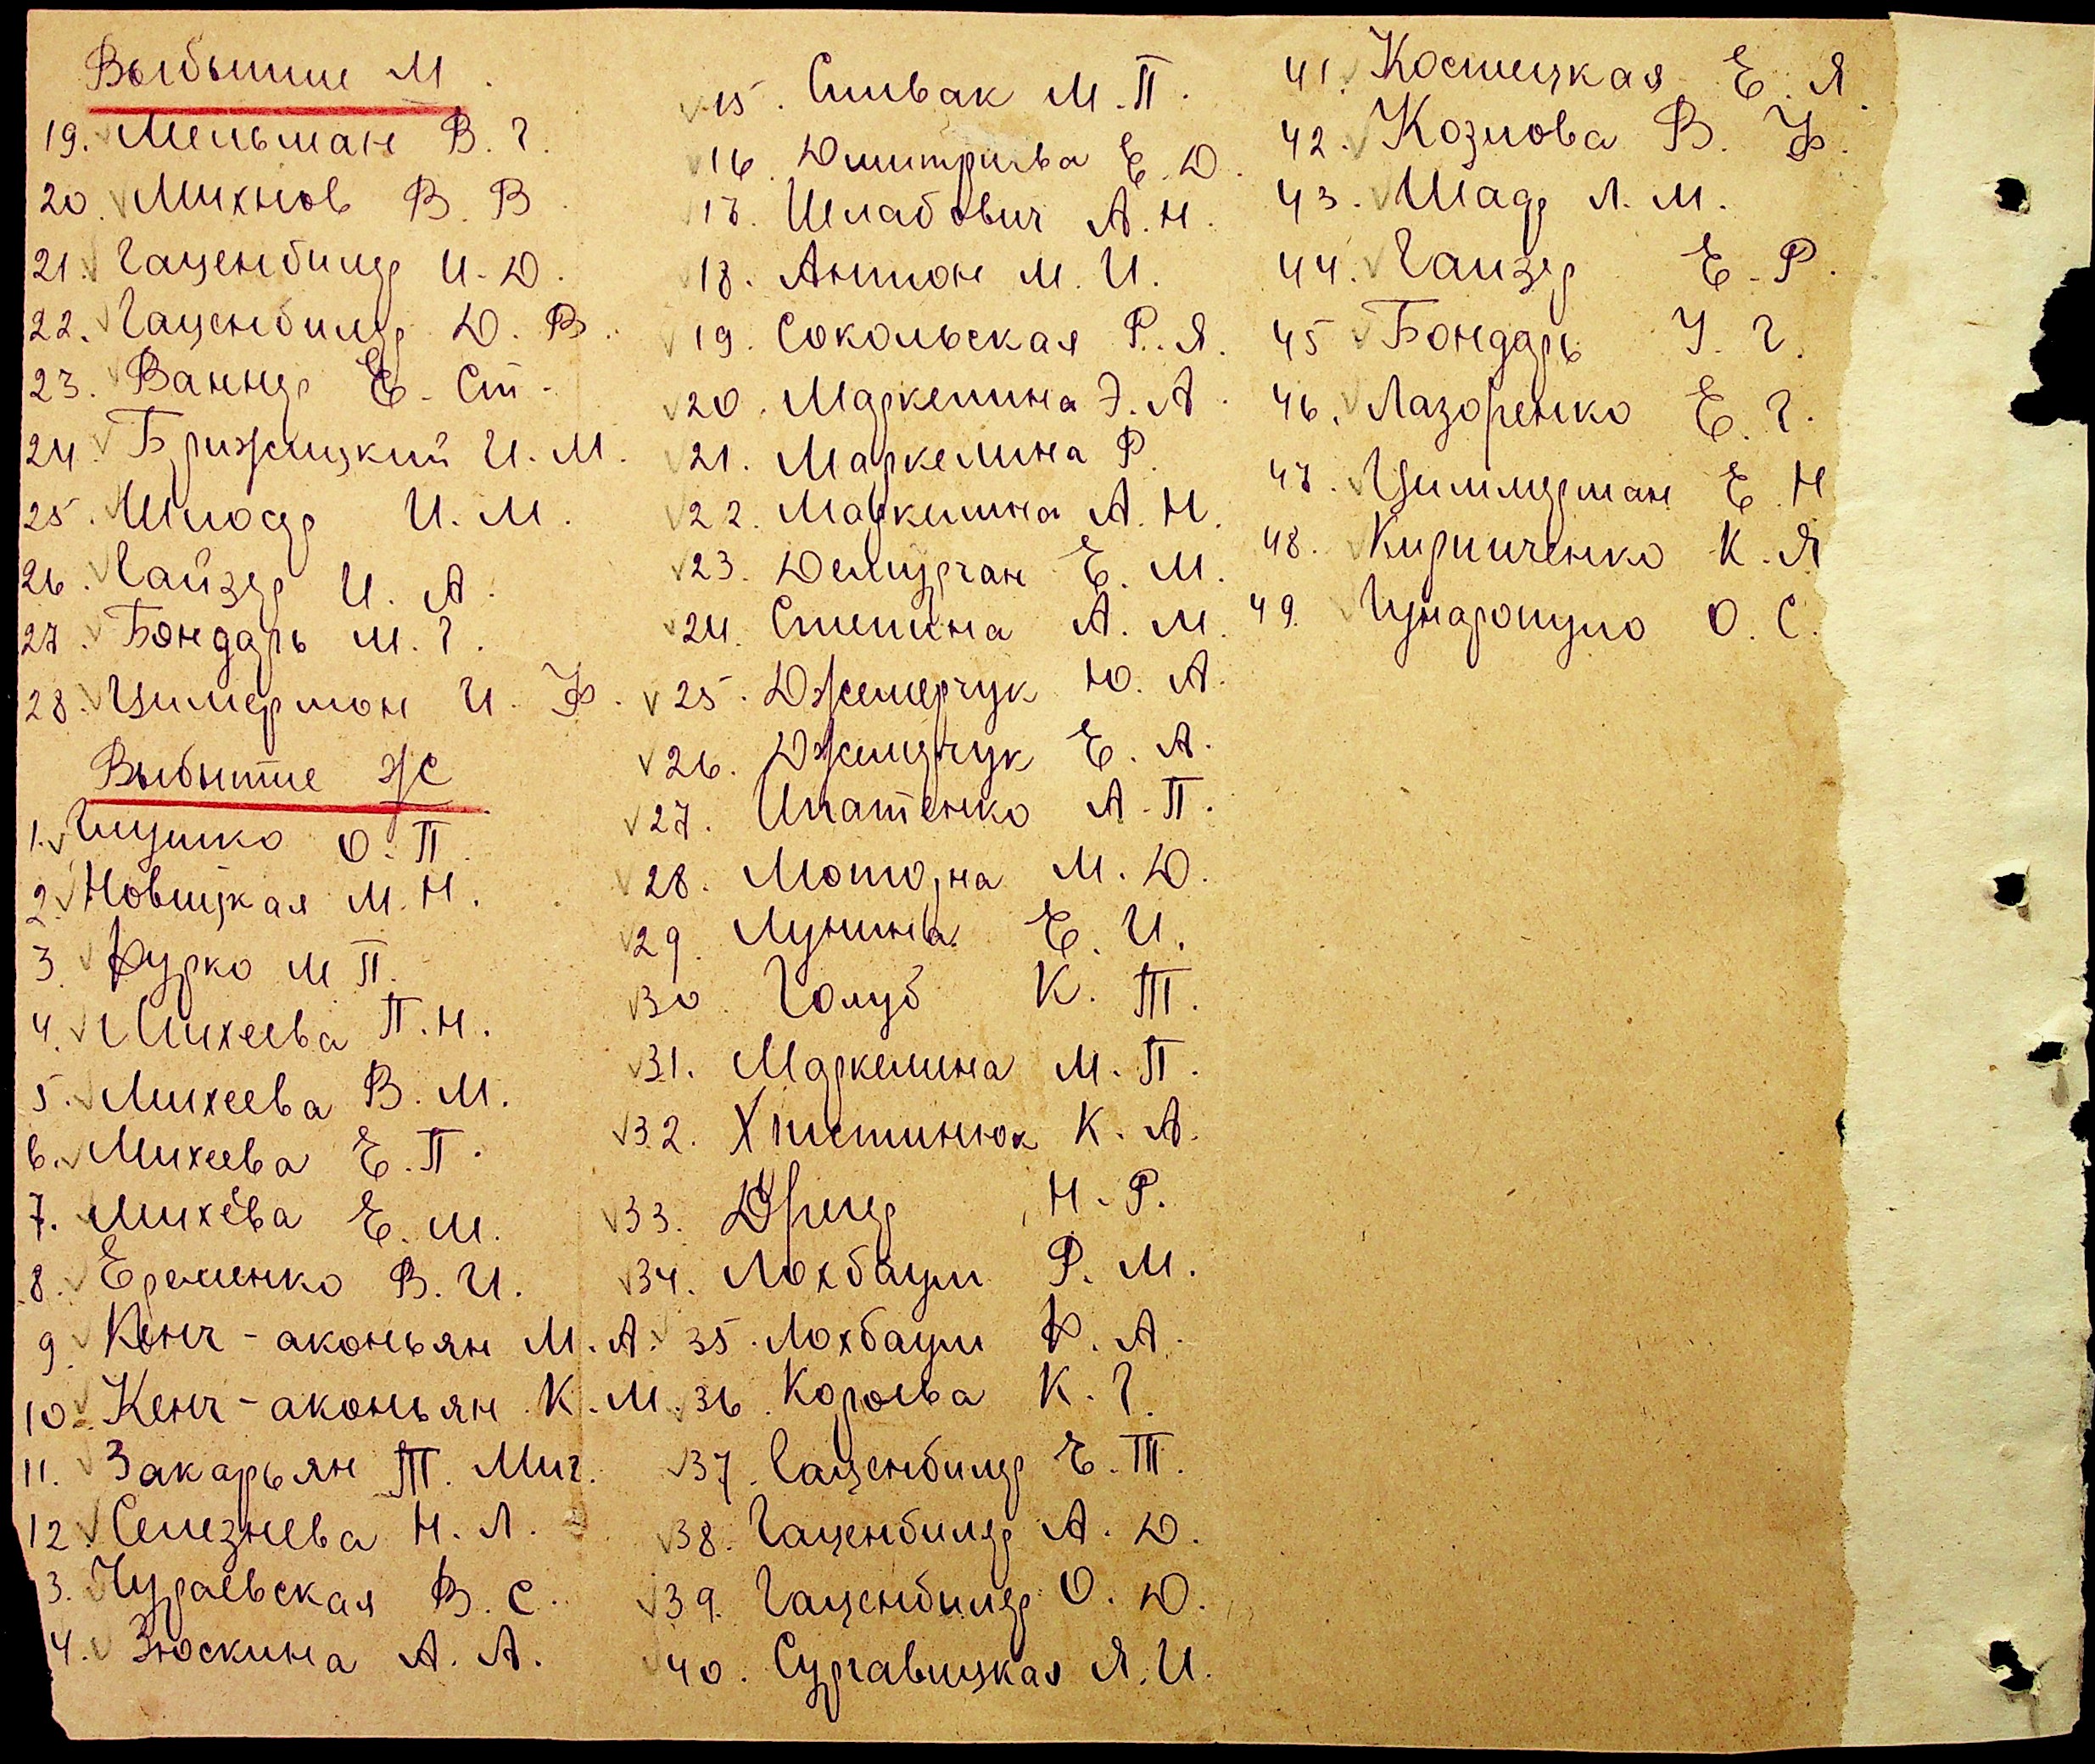 Выбытие М.
19. Мельман В. Г.
20. Михнов В. В.
21. Гаценбилер И. Д.
22. Гаценбилер Д. В.
23. Ваннер Е. Ст.
24. Брижицкий И. М.
25. Шлодер И. М.
26. Гайзер И. А.
27. Бондарь М. Г.
28. Цимерман И. Ф.
Выбытие Ж
1. Глушко О. П.
2. Новицкая М. Н.
3. Фурко М П.
4. Михеева П. Н.
5. Михеева В. М.
6. Михеева Е. П.
7. Михева Е. М.
8. Еременко В. И.
9. Кенч-аконьян М. А.
10. Кенч-аконьян К. М.
11. Закарьян Т. Миг.
12. Селезнева Н. Л.
3. Чураевская В. С.
4. Зюскина А. А.
15. Спивак М. П.
16. Дмитриева Е. Д.
17. Шлабович А. Н.
18. Антон М. И.
19. Сокольская Р. Я.
20. Маркелина Э. А.
21. Маркелина Р.
22. Маркелина А. Н.
23. Демурчан Е. М.
24. Степина А. М.
25. Джемерчук Ю. А.
26. Джемерчук Е. А.
27. Ипатенко А. П.
28. Моторна М. Д.
29. Лунина Е. И.
30. Голуб К. Т.
31. Маркелина М. П.
32. Христинюк К. А.
33. Н. Р.
34. Лохбаум Р. М.
35. Лохбаум Ф. А.
36. Королева К. Г.
37. Гаценбилер Е. Т.
38. Гаценбилер А. Д.
39. Гаценбилер О. Д.
40. Сургавицкая Я. И.
41. Костецкая Е. Я.
42. Козлова В. Ф.
43. Шадр Л. М.
44. Гаизер Е. Р.
45 Бондарь У. Г.
46. Лазоренко Е. Г.
47. Циммерман Е. Н
48. Кирпиченко К. Я
49. Гунаропуло О. С.